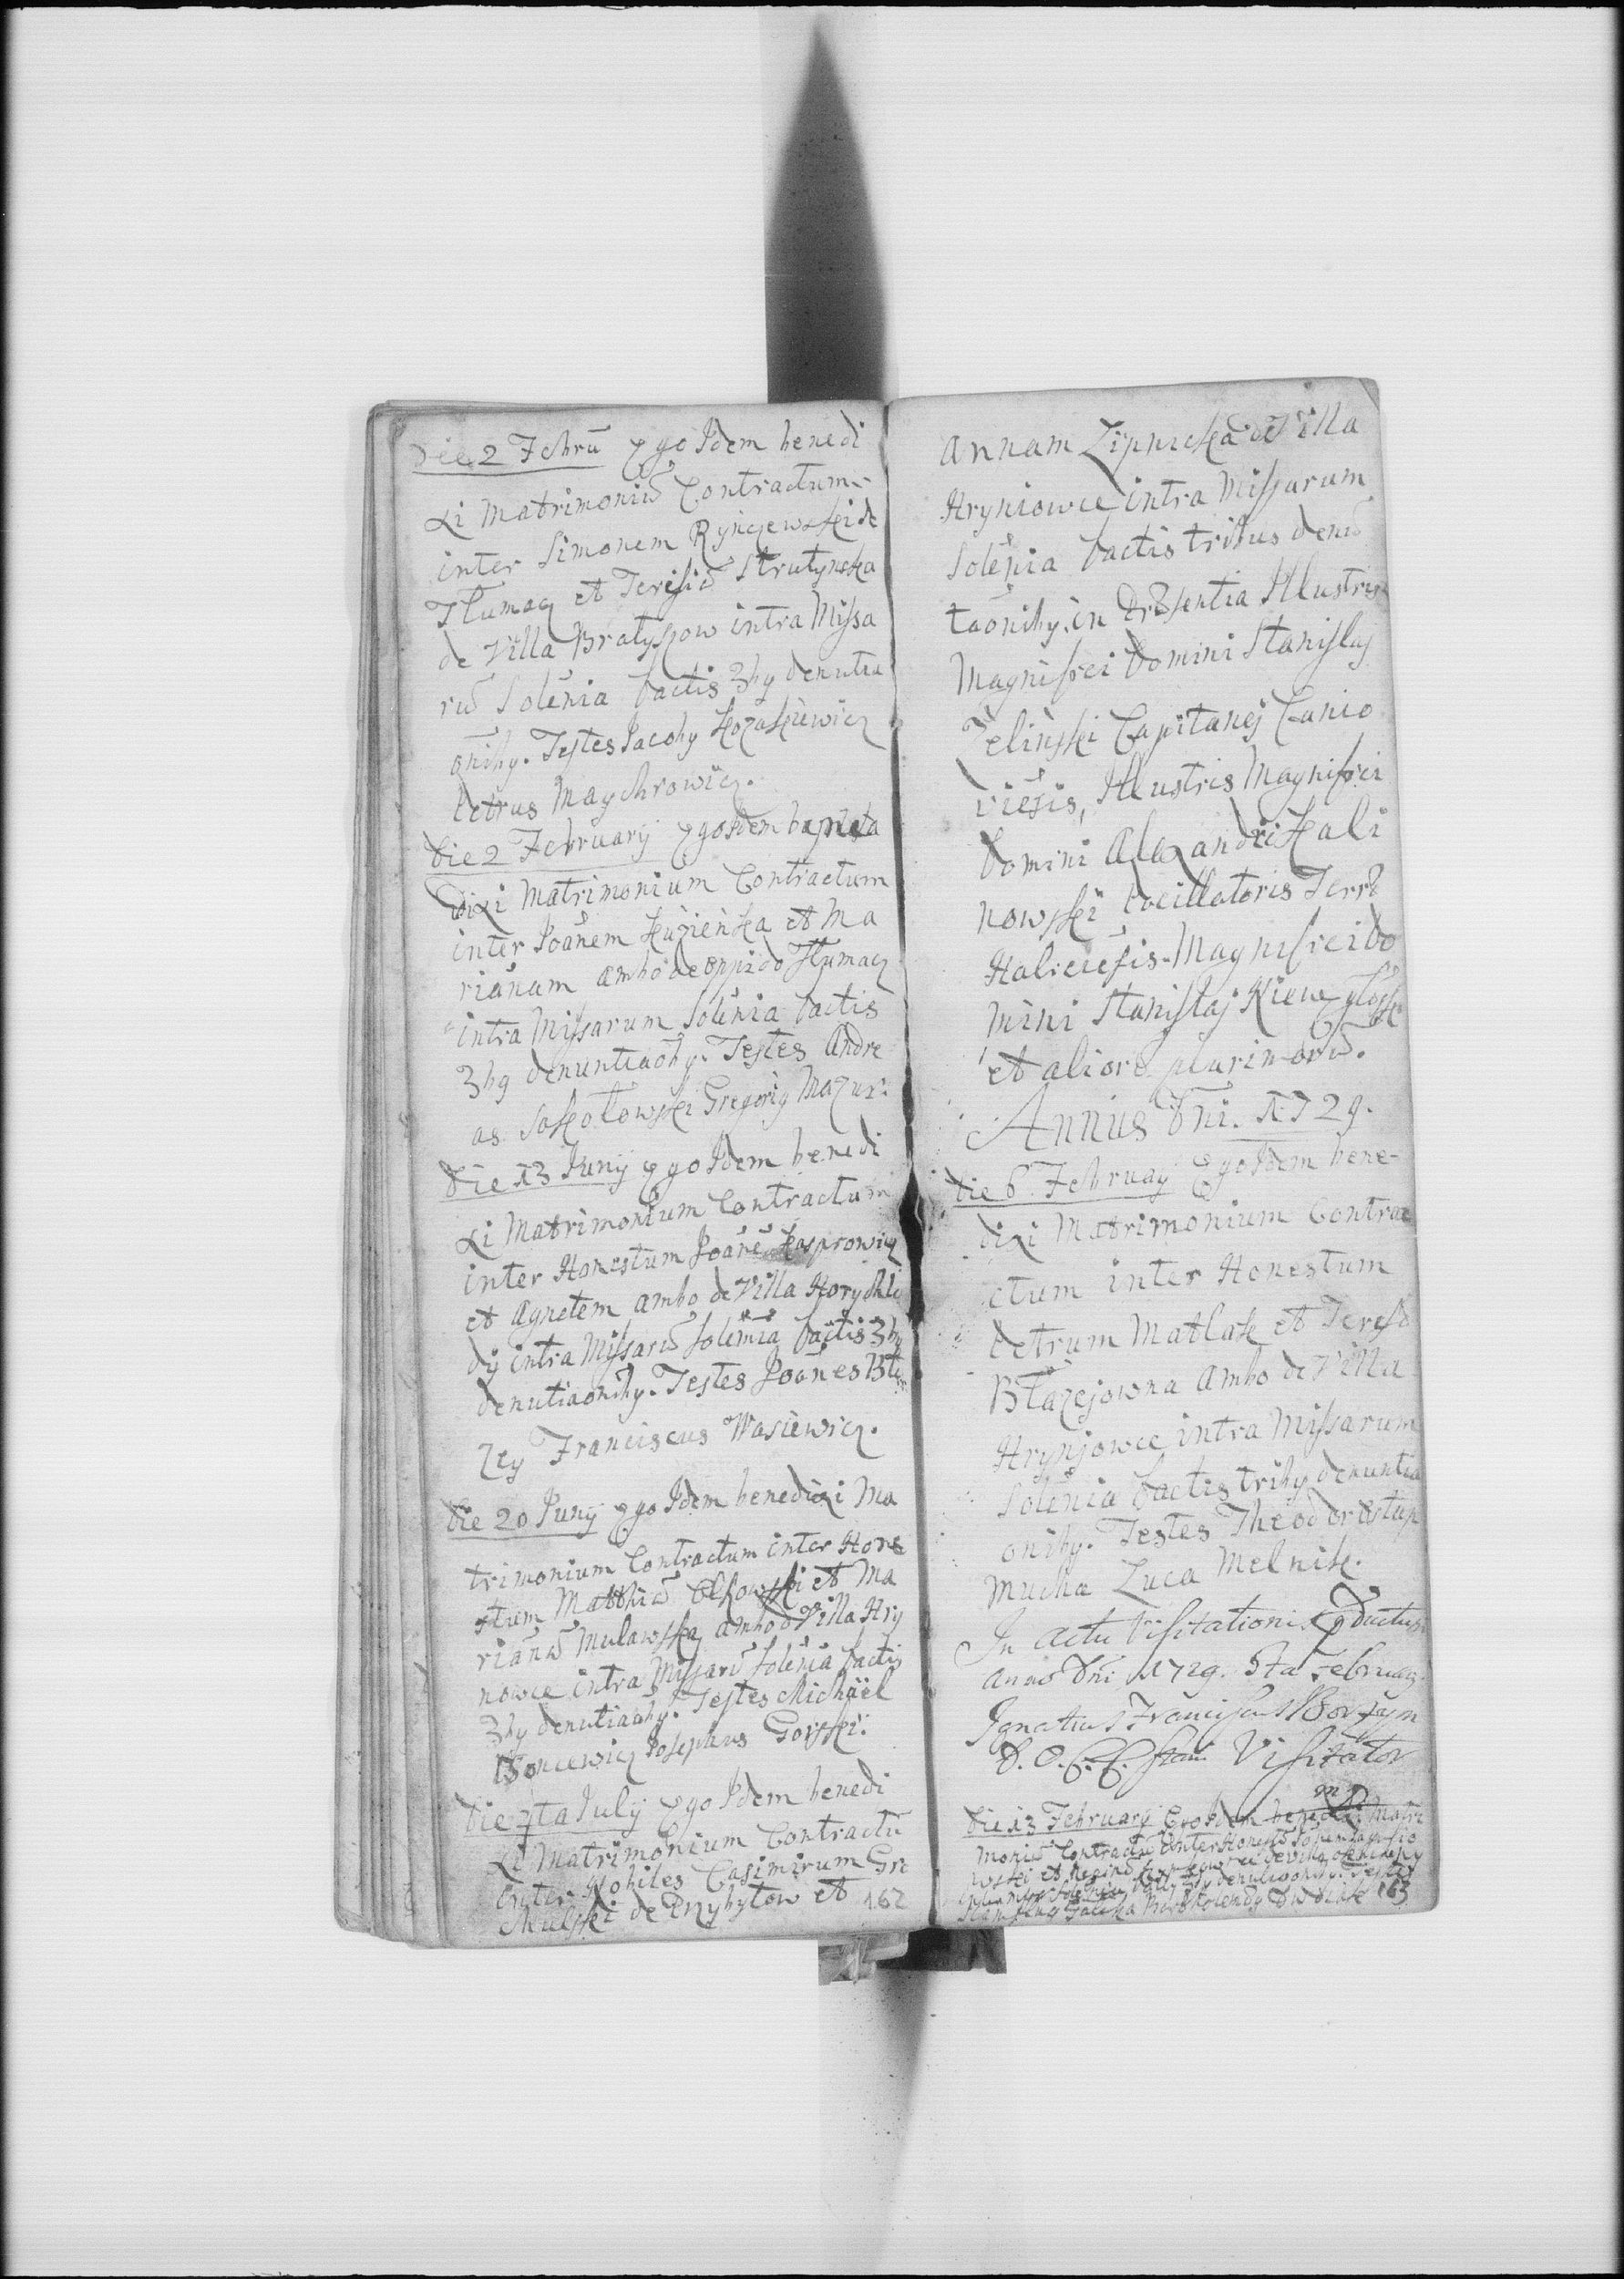 Die 2 Febrũ Ego Idem benedi
xi Matrimoniũ Contractum
inter Simonem Rynczewski de
Tłumacz et Teresiã Strutynska
de Villa Bratyszow intra Missa
rũ Solẽnia factis 3by denutia
onibꝫ. Testes Jacobꝫ Kozakiewicz
Petrus Maychrowicz.
Die 2 February Ego Idem
dixi Matrimonium Contractum
inter Joãnem et Ma
riãnam ambo de oppido Tłumacz
intra Missarum Solẽnia factis
3by denuntiaõby. Testes Andre
as Sokołowski Gregoriꝫ Mazur.
Die 13 Junij Ego Idem benedi
xi Matrimonium Contractum
inter Honestum Joãnẽ Kasprowicz
et Agnetem ambo de Villa Horyhla
dij intra Missarũ solẽnia factis 3by
denutiaonibꝫ. Testes Joãnes
Franciscus Wasiewicz.
Die 20 Junij Ego Idem benedixi Ma
trimonium Contractum inter Hone
stum Matthiã et Ma
riãnã Mulawska ambo d Villa Hry
nowce intra Missarũ solẽnia factis
3by denutiaõby. Testes Michaël
Josephus Gorski.
Die 7ta July Ego Idem benedi
xi Matrimonium Contractũ
inter Nobiles Casimirum Gre
de Przybyłow et 162
Annam Lipnickã de Villa
Hryniowce intra Missarum
Solẽnia factis tribus denũ
taõniby. in Præsentia Illustris
Magnifici Domini Stanislaj
Zelinski Capitanej Canio
viẽsis, Illustris Magnifici
Domini Alexandri Kali
nowski Pocillatoris Terræ
Haliciẽsis. Magnifici Do
mini Stanislaj
et aliorũ plurimorũ.
Annus Dni. 1729.
Die 6 Februay Ego Idem bene-
dixi Matrimonium Contra
ctum inter Honestum
Petrum Matlak et Teresã
Błazejowna Ambo de Villa
Hryniowce intra Missarum
Solẽnia factis triby denuntia
oniby. Testes Theodor Ostap
Mucha Luca Melnik.
In actu Visitationis Pductus
Anno Dni 1729. 8ta Februarij
Ignatius Franciscus
Visitator
mp
Die 13 February Ego Idem benedixi Matri
moniũ Contractũ inter Honestũ
wski et Reginã de Villa
Solẽnia factis 3by denutiaoniby. Testes
163